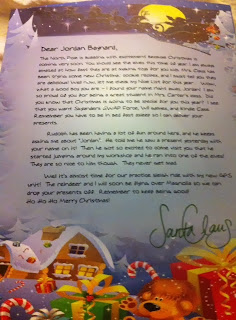 Dear Jordan Baynard,
The North Pole is buzzing with excitement because Christmas is
coming very soon. You should see the elves this time of year. I am always
amazed at how fast they are at making toys for you kids. Mrs. Claus has
been trying some new Christmas cookie recipes, and I must tell you they
are delicious! Well now, let me check my Nice List for this year... Wow
what a good boy you are - I found your name right away Jordan! I am
so proud of you for being a great student in Mrs. Carter's class. Did
you know that Christmas is going to be special for you this year? I see
that you want Superhero games, and Kindle Class.
Remember you have to be in bed fast asleep so I can deliver your
presents.
Rudolph has been having a lot of fun around here, and he keeps
asking me about "Jordan". He told me he saw a present yesterday with
your name on it! Then he got so excited to come visit you that he
started jumping around my workshop and he ran into one of the elves!
They are so nice to him though. They never get mad.
Well it's almost time for our practice sleigh ride with my new GPS
unit! The reindeer and I will soon be flying over Magnolia so we can
drop your presents off. Remember to keep being good!
Ho Ho Ho, Merry Christmas!
Santa Claus